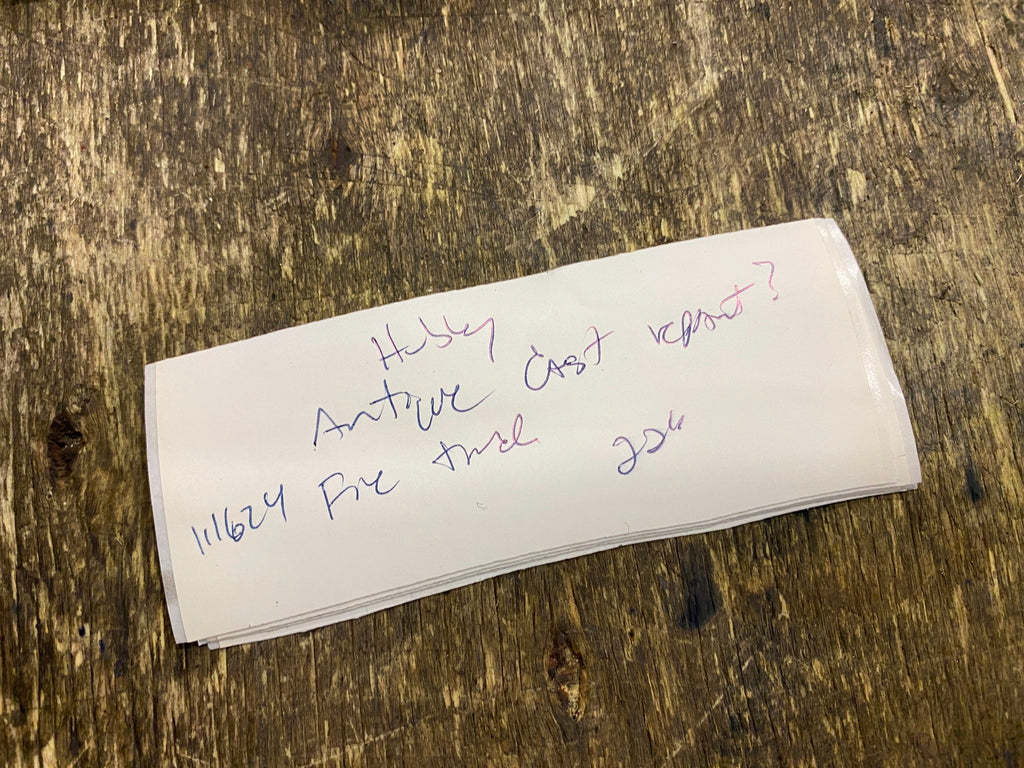 Hubley
Antique Cast repaint?
111624 Fire truck